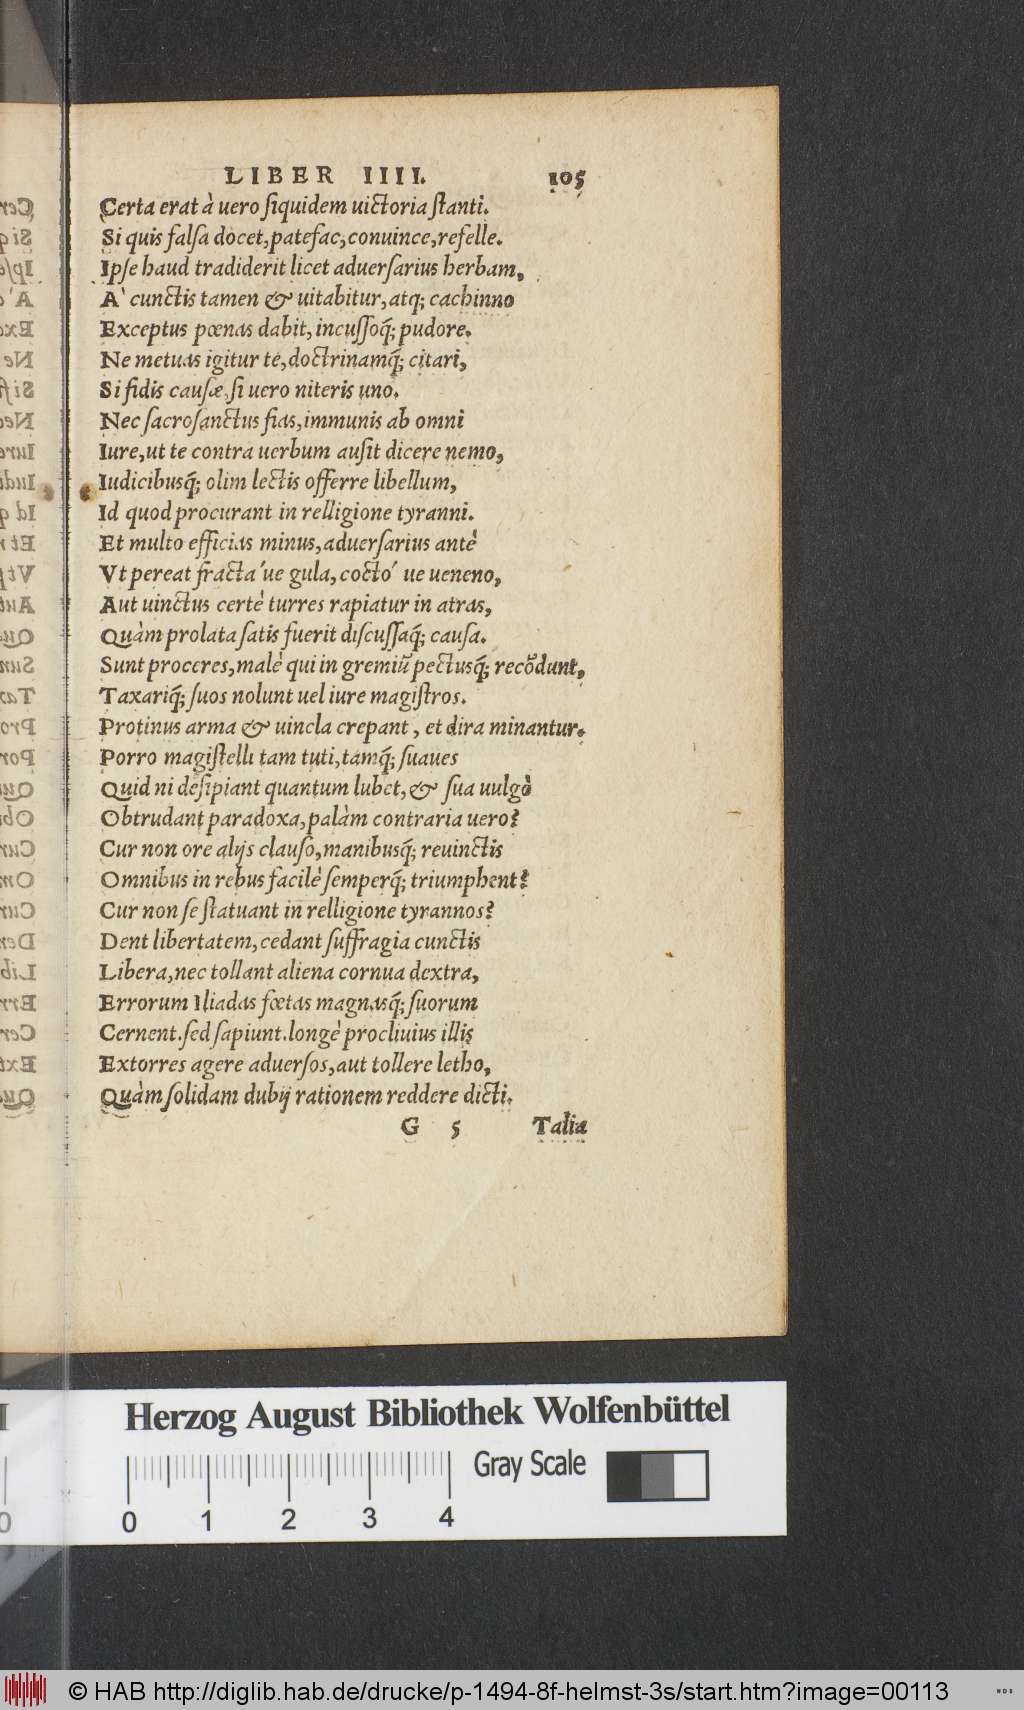 LIBER IIII. 105
Certa erat à uero ſiquidem uictoria ſtanti.
Si quis falſa docet, patefac, conuince, refelle.
Ipſe haud tradiderit licet aduerſarius herbam,
A' cunctis tamen & uitabitur, atq; cachinno
Exceptus pœnas dabit, incuſſoq́; pudore.
Ne metuas igitur te, doctrinamq́; citari,
Si fidis cauſæ, ſi uero niteris uno.
Nec ſacroſanctus fias, immunis ab omni
Iure, ut te contra uerbum auſit dicere nemo,
Iudicibusq́; olim lectis offerre libellum,
Id quod procurant in relligione tyranni.
Et multo efficias minus, aduerſarius antè
Vt pereat fracta'ue gula, cocto' ue ueneno,
Aut uinctus certè turres rapiatur in atras,
Quàm prolata ſatis fuerit diſcuſſaq́; cauſa.
Sunt proceres, malè qui in gremiũ pectusq́; recõdunt,
Taxariq́; ſuos nolunt uel iure magiſtros.
Protinus arma & uincla crepant, et dira minantur.
Porro magiſtelli tam tuti, tamq́; ſuaues
Quid ni deſipiant quantum lubet, & ſua uulgò
Obtrudant paradoxa, palàm contraria uero?
Cur non ore alijs clauſo, manibusq́; reuinctis
Omnibus in rebus facilè ſemperq́; triumphent?
Cur non ſe ſtatuant in relligione tyrannos?
Dent libertatem, cedant ſuffragia cunctis
Libera, nec tollant aliena cornua dextra,
Errorum Iliadas fœtas magnasq́; ſuorum
Cernent. ſed ſapiunt. longè procliuius illis
Extorres agere aduerſos, aut tollere letho,
Quàm ſolidam dubij rationem reddere dicti.
G 5 Talia
Herzog August Bibliothek Wolfenbüttel
Gray Scale
0 1 2 3 4
© HAB http://diglib.hab.de/drucke/p-1494-8f-helmst-3s/start.htm?image=00113